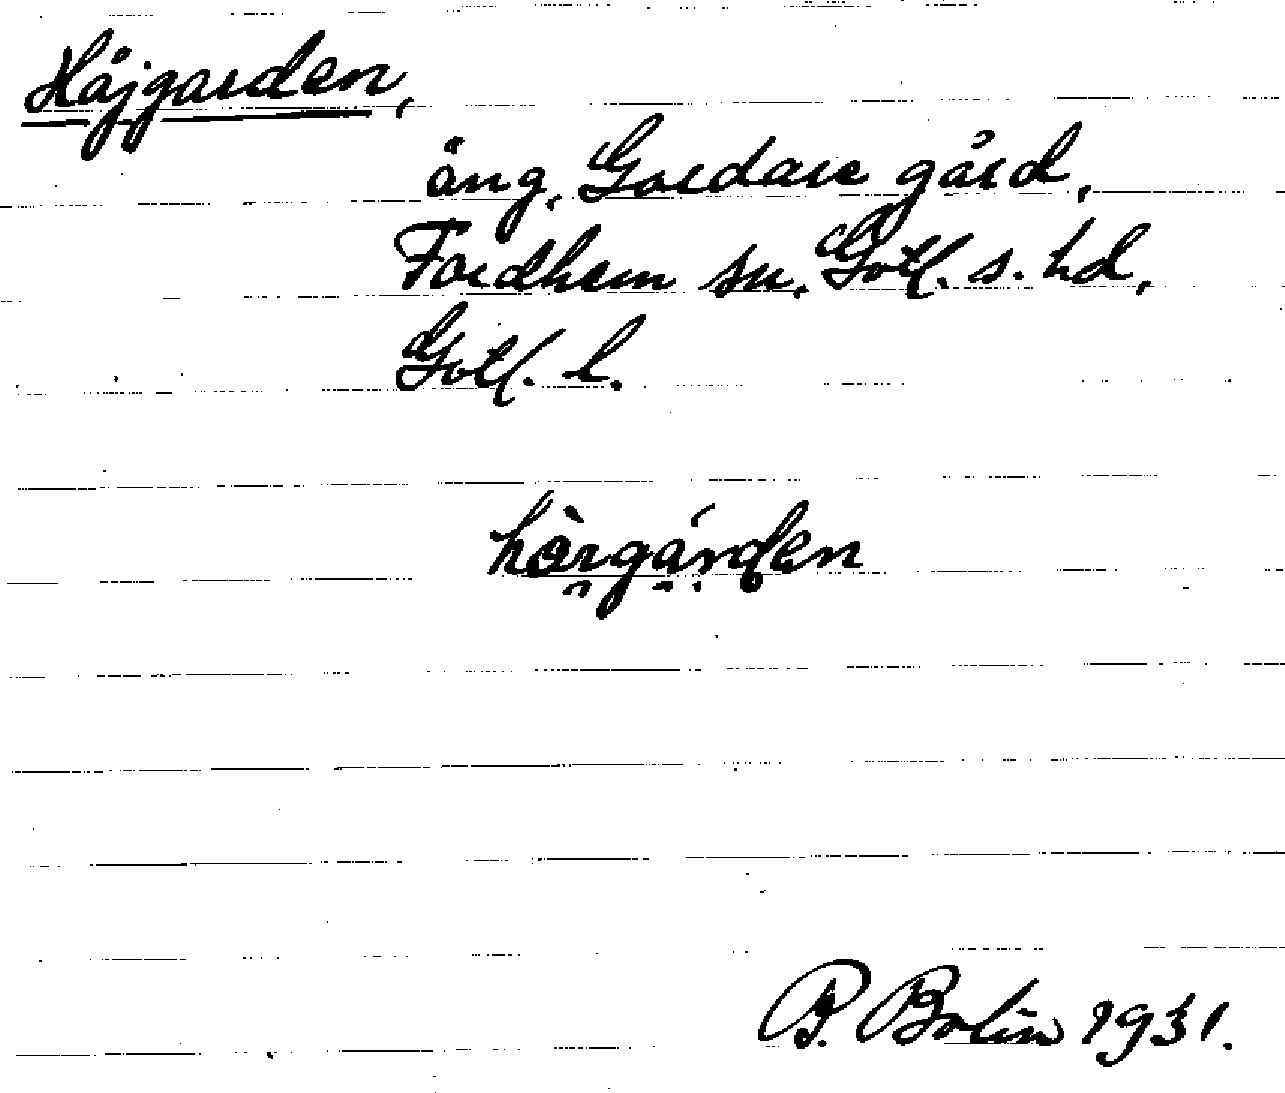 Håjgarden,
äng, Gordare gård,
Fardhem sn, Gotl. s. hd,
Gotl. l.
hòrgárden
B. Bolin 1931.